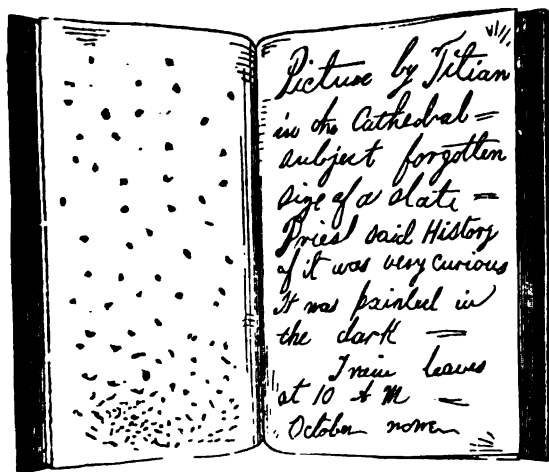 Picture by Titian
in the Cathedral =
subject forgotten
size of a slate =
Priest said History
of it was very curious
It was painted in
the dark =
Train leaves
at 10 A M -
October